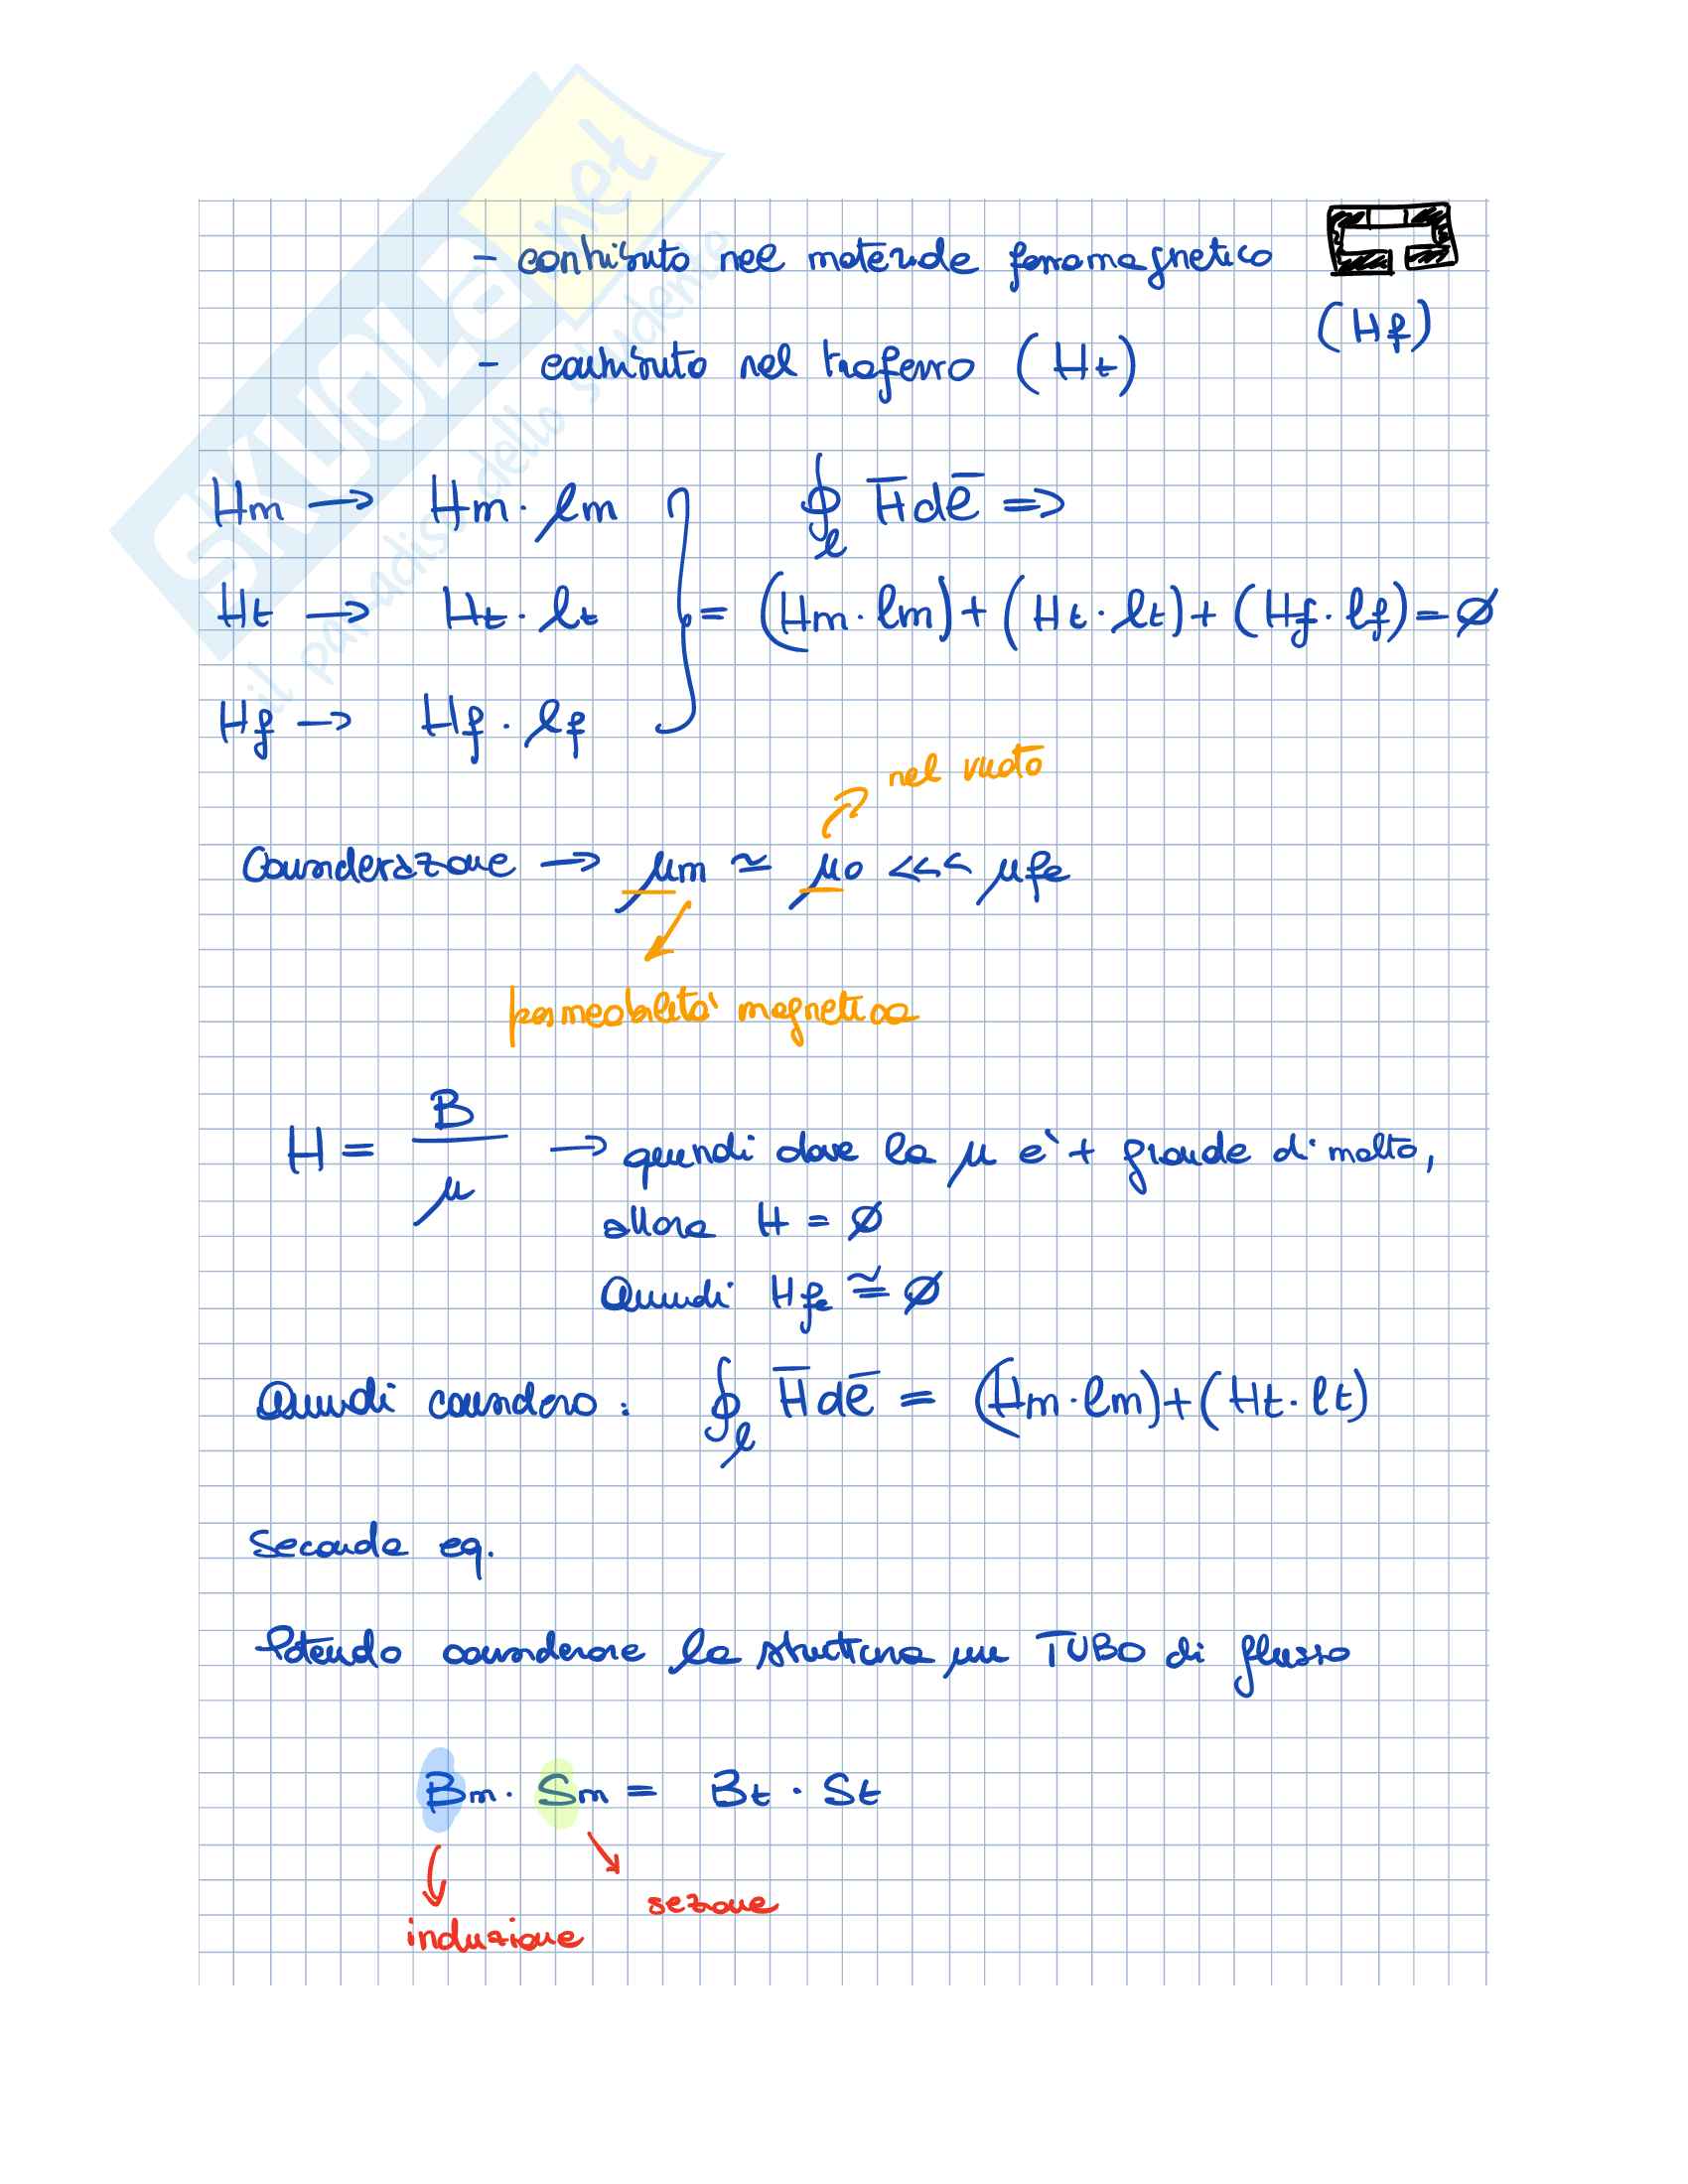 SKUOLA.net
il paradiso dello studente
- contributo nel materiale ferromagnetico
(Hf)
- contributo nel traferro (Ht)
Hm → Hm · lm
∮l H̅ dl̅ =>
Ht → Ht · lt
= (Hm · lm) + (Ht · lt) + (Hf · lf) = ∅
Hf → Hf · lf
nel vuoto
Considerazione → μm ≃ μo <<< μfe
permeabilità magnetica
H = B/μ → quindi dove la μ è + grande di molto,
allora H = ∅
Quindi Hfe ≅ ∅
Quindi considero: ∮l H̅ dl̅ = (Hm · lm) + (Ht · lt)
Seconda eq.
Potendo considerare la struttura un TUBO di flusso
Bm · Sm = Bt · St
sezione
induzione